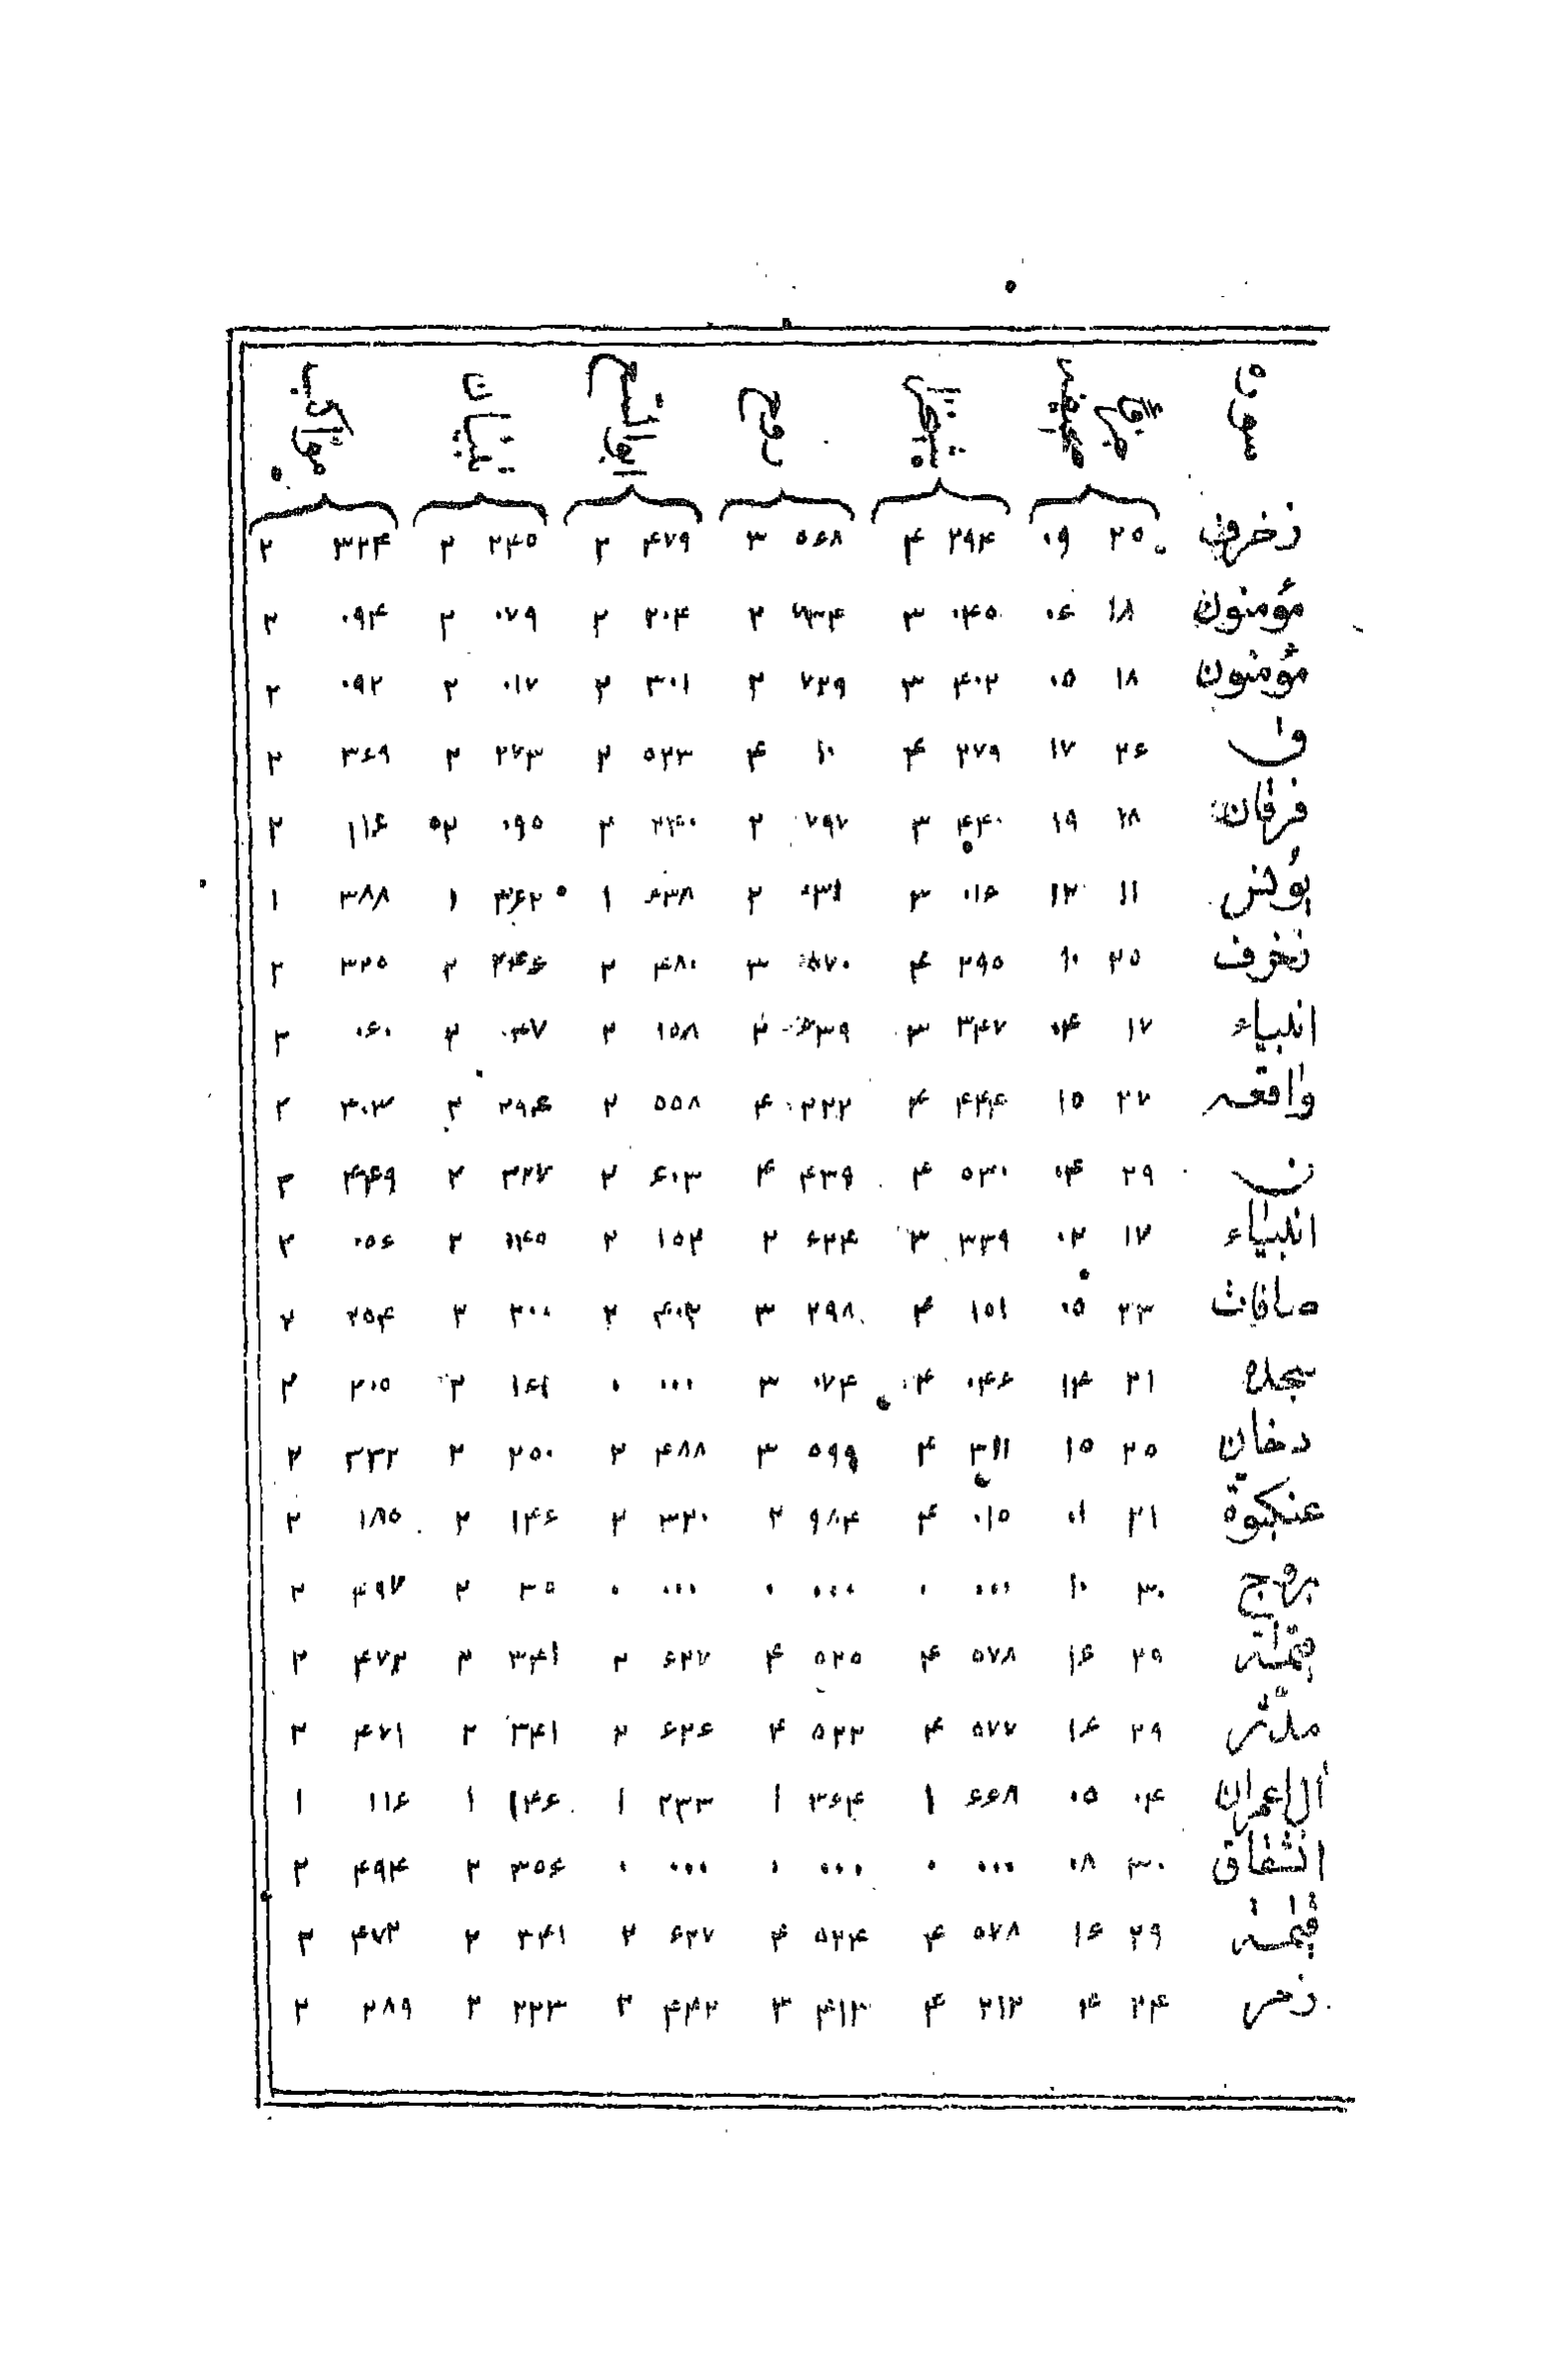 سوره روح تبیان
زخرف ۲۵ ۰۹ ۲۹۴ ۴ ۵۶۸ ۳ ۴۷۹ ۲ ۲۴۵ ۲ ۳۲۴ ۲
مؤمنون ۱۸ ۰۶ ۰۴۵ ۳ ۲ ۲۰۴ ۲ ۰۷۹ ۲ ۰۹۴ ۲
مؤمنون ۱۸ ۰۵ ۴۰۲ ۳ ۷۲۹ ۲ ۳۰۱ ۲ ۰۱۷ ۲ ۰۹۲ ۲
ق ۲۶ ۱۷ ۲۷۹ ۴ ۱۰ ۴ ۵۲۳ ۲ ۲۷۳ ۲ ۳۶۹ ۲
فرقان ۱۸ ۱۹ ۴۴۰ ۳ ۷۹۷ ۲ ۲۴۰ ۲ ۰۹۵ ۲ ۱۱۶ ۲
یونس ۱۱ ۱۲ ۰۱۶ ۳ ۰۳۱ ۲ ۶۳۸ ۱ ۳۶۲ ۱ ۳۸۸ ۱
زخرف ۲۵ ۱۰ ۲۹۵ ۴ ۵۷۰ ۳ ۴۸۰ ۲ ۲۴۶ ۲ ۳۲۵ ۲
انبیاء ۱۷ ۰۴ ۳۴۷ ۳ ۶۳۹ ۲ ۱۵۸ ۲ ۰۴۷ ۲ ۰۶۰ ۲
واقعه ۲۷ ۱۵ ۴۴۴ ۴ ۲۲۲ ۴ ۵۵۸ ۲ ۲۹۴ ۲ ۴۰۳ ۲
ن ۲۹ ۰۴ ۵۳۰ ۴ ۴۳۹ ۴ ۶۰۳ ۲ ۳۲۷ ۲ ۴۴۹ ۲
انبیاء ۱۷ ۰۲ ۳۳۹ ۳ ۶۲۴ ۲ ۱۵۴ ۲ ۰۴۵ ۲ ۰۵۶ ۲
صافات ۲۳ ۰۵ ۱۵۱ ۴ ۲۹۸ ۳ ۴۰۳ ۲ ۲۰۰ ۲ ۲۵۴ ۲
سجده ۲۱ ۱۴ ۰۴۶ ۴ ۰۷۴ ۳ ۰۰۰ ۰ ۱۶۱ ۲ ۲۰۵ ۲
دخان ۲۵ ۱۵ ۳۱۱ ۴ ۵۹۹ ۳ ۴۸۸ ۲ ۲۵۰ ۲ ۳۳۲ ۲
عنکبوة ۲۱ ۰۱ ۰۱۵ ۴ ۹۸۴ ۲ ۳۲۰ ۲ ۱۴۶ ۲ ۱۸۵ ۲
بروج ۳۰ ۱۰ ۰۰۰ ۰ ۰۰۰ ۰ ۰۰۰ ۰ ۳۵ ۲ ۴۹۷ ۲
قیمة ۲۹ ۱۶ ۵۷۸ ۴ ۵۲۵ ۴ ۶۲۷ ۲ ۳۴۱ ۲ ۴۷۲ ۲
مدّثر ۲۹ ۱۶ ۵۷۷ ۴ ۵۲۲ ۴ ۶۲۶ ۲ ۳۴۱ ۲ ۴۷۱ ۲
آل اعمران ۰۴ ۰۵ ۶۶۸ ۱ ۳۶۴ ۱ ۲۳۳ ۱ ۱۴۶ ۱ ۱۱۶ ۱
انشقاق ۳۰ ۰۸ ۰۰۰ ۰ ۰۰۰ ۰ ۰۰۰ ۰ ۳۵۶ ۲ ۴۹۴ ۲
قیمة ۲۹ ۱۶ ۵۷۸ ۴ ۵۲۴ ۴ ۶۲۷ ۲ ۳۴۱ ۲ ۴۷۲ ۲
زمر ۲۴ ۴ ۲۱۲ ۴ ۴۱۳ ۳ ۴۴۲ ۲ ۲۲۳ ۲ ۲۸۹ ۲